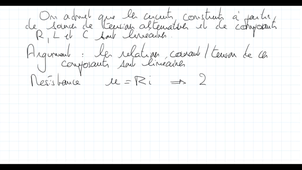 On admet que les circuits construits à partir
de source de tension alternatives et de composants
R, L et C sont linéaires
Argument : les relations courant/tension de ces
composants sont linéaires
Résistance u = Ri ⇒ 2